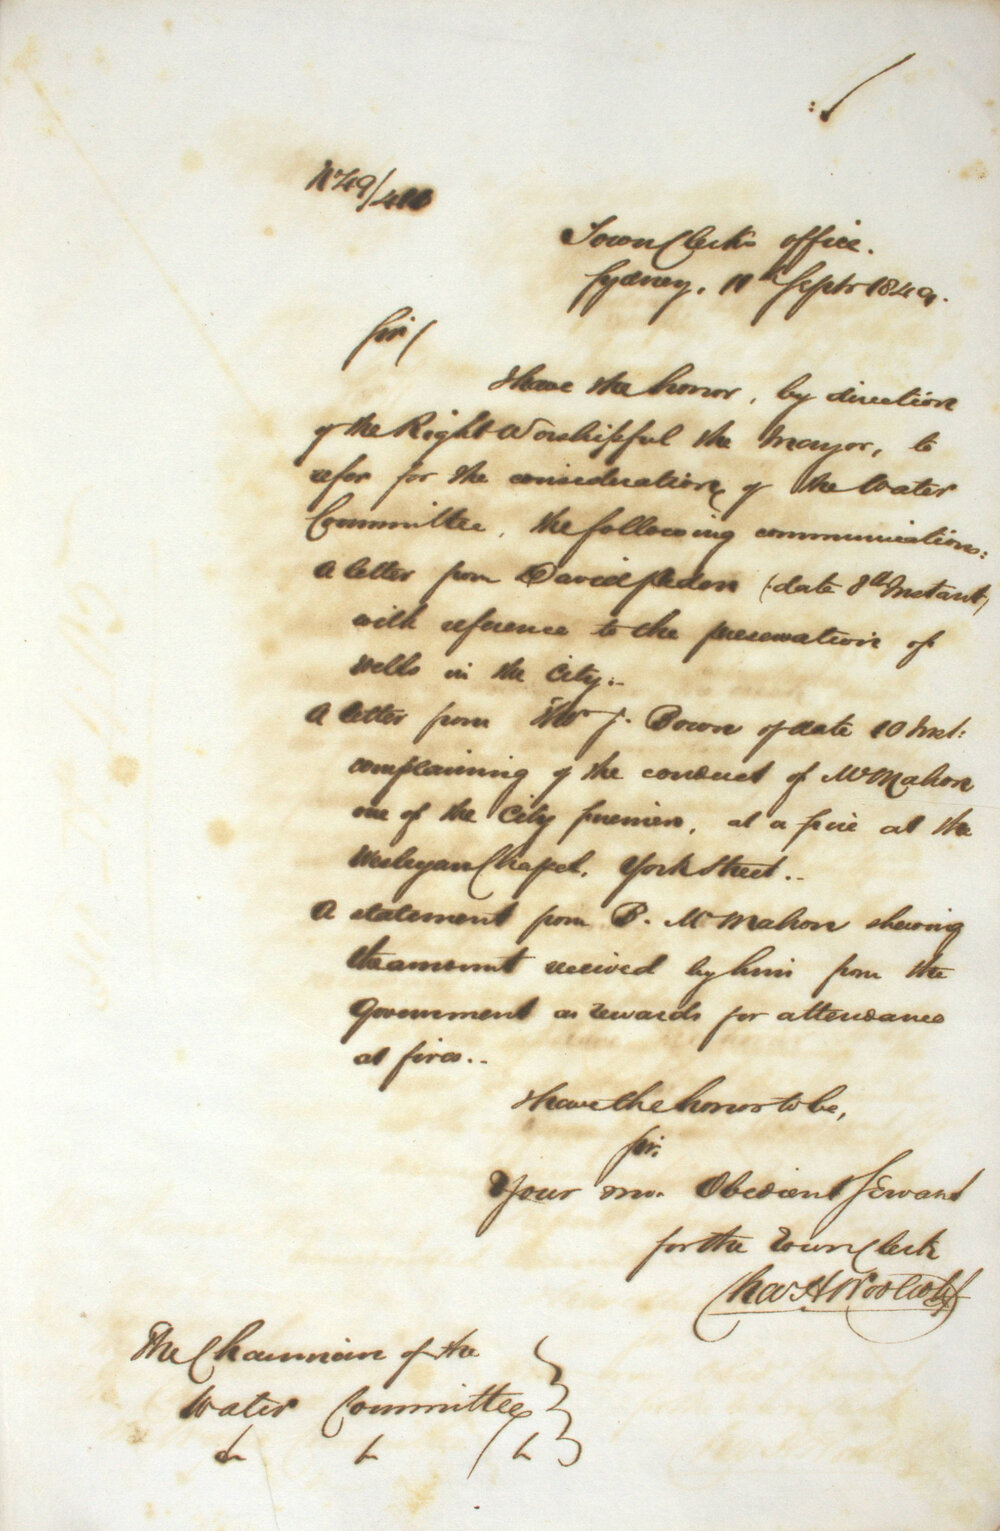 No 49/
Town Clerks office.
Sydney, 11th Septr 1849.
Sir,
I have the honor, by direction
of the Right Worshipful the Mayor, to
refer for the consideration of the Water
Committee, the following communications:
A letter from David (date 8th Instant)
with reference to the preservation of
Wells in the City:-
A letter from Thos J. Bown of date 10 Inst:
complaining of the conduct of McMahon
one of the City firemen, at a fire at the
Wesleyan Chapel, York Street.-
A statement from B. McMahon shewing
the amount received by him from the
Government as rewards for attendance
at fires.-
I have the honor to be,
Sir,
Your mo. Obedient Servant
for the Town Clerk
Chas H Woolcott
The Chairman of the
Water Committee